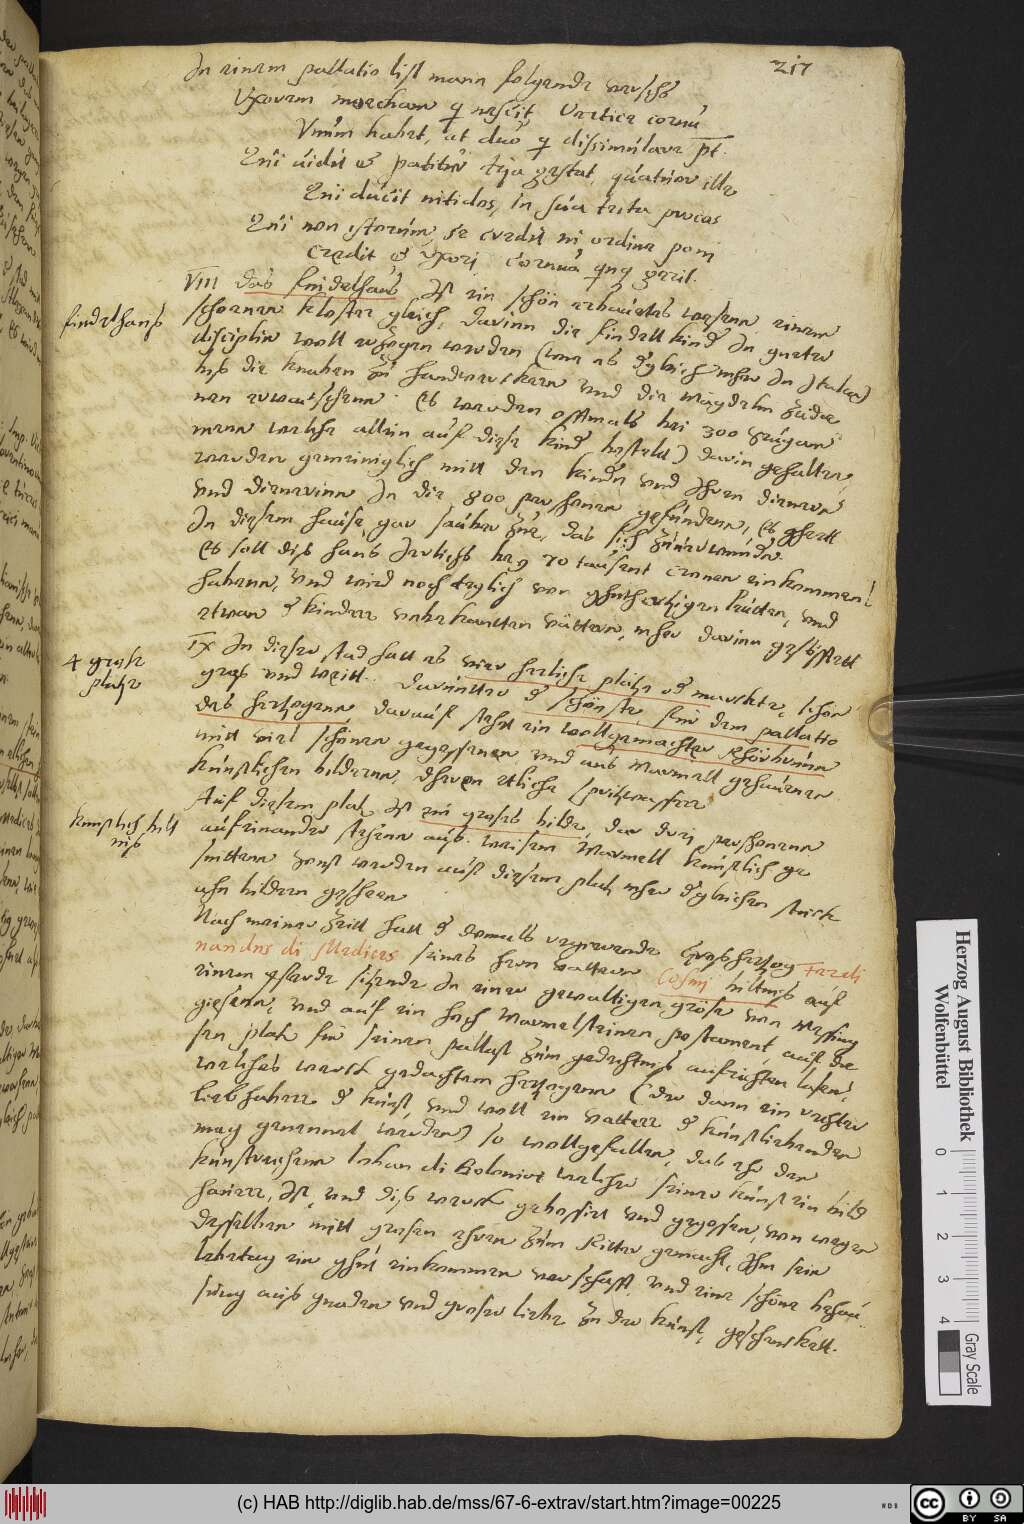 217
In einem pallatio list mann folgende versch
Uxorem moecham q nescit, vertice cornu
Unum habet, at duo q dissimulare pt.
Qui videt et patitur tria gestat, quatuor ille
Qui ducit nitidos, in sua tecta procos
Qui non istorum, se credit in ordine poni
Credit et uxori cornua qnq gerit.
findelhaus
VIII das findelhaus Ist ein schön erbauetes wesenn, einem
schoenen kloster gleich, darinn die findell kind In gueter
disciplin woll erzogen werden (wie es dgleich mehr in Italia)
bis die knaben zu handwerckern und die mägdelin zu
werden gemeiniglich mitt den kindn und Ihren dienern
und dienerinn In die 800 personen gefundenn, Es gehett
In diesem hause gar sauber zue, das sich zuverwundn
Es soll dis haus Jerlichs bey 70 tausent cronen einkommen
habenn, und wird noch teglich von gutthertigen leütten, und
4 grose
pletze
IX In dieser stad hatt es vier herliche pletze od merckte, schön
gros und weitt. darunter d schönste, für dem pallatio
des hertzogenn darauf stehet ein wollgemachter röhrbrunn
mitt viel schönen gegossenen und aus Marmell gehauenen
künstlichen bildernn, dheren etliche spritzwasser
kunstlich bilt
nis
Auf diesem platz Ist ein groses bilde, der drej personenn
aufeinander stehenn aus weisem Marmell künstlich ge
schnittenn sonst werden auf diesem platz mher dgleichen stück
ahn bildern gesehenn
Nach meiner zeitt hatt d damals regierende Grosherzog Ferdi
nandus di Medices seines hern vatters Cosmj biltnis auf
einem pferde sitzende In einer gewaltigen gröse von Messing
giesenn, und auf ein hoch Marmelsteinen postament auf die
sen platz für seinen pallast zum gedechtnis aufrichten lasen,
welches werck gedachtem hertzogenn (der dann ein rechter
liebhaber d künst, und woll ein vatter d künstliebenden
mag genennet werden) so wollgefallen, das ehr den
künstreichenn Johan di Bolonia welcher seiner künst ein bild
hauer, Ist, und dis werck gebossirt und gegossen, von wegen
desselben mitt grosen ehren zum Ritter gemacht, Ihm sein
lebetag ein ghut einkommen verschafft, und eine schöne behau
sung aus gnaden und groser liebe zu der künst, geschenckett.
Herzog August Bibliothek
Wolfenbüttel
0 1 2 3 4
Gray Scale
(c) HAB http://diglib.hab.de/mss/67-6-extrav/start.htm?image=00225
WDB
CC BY SA